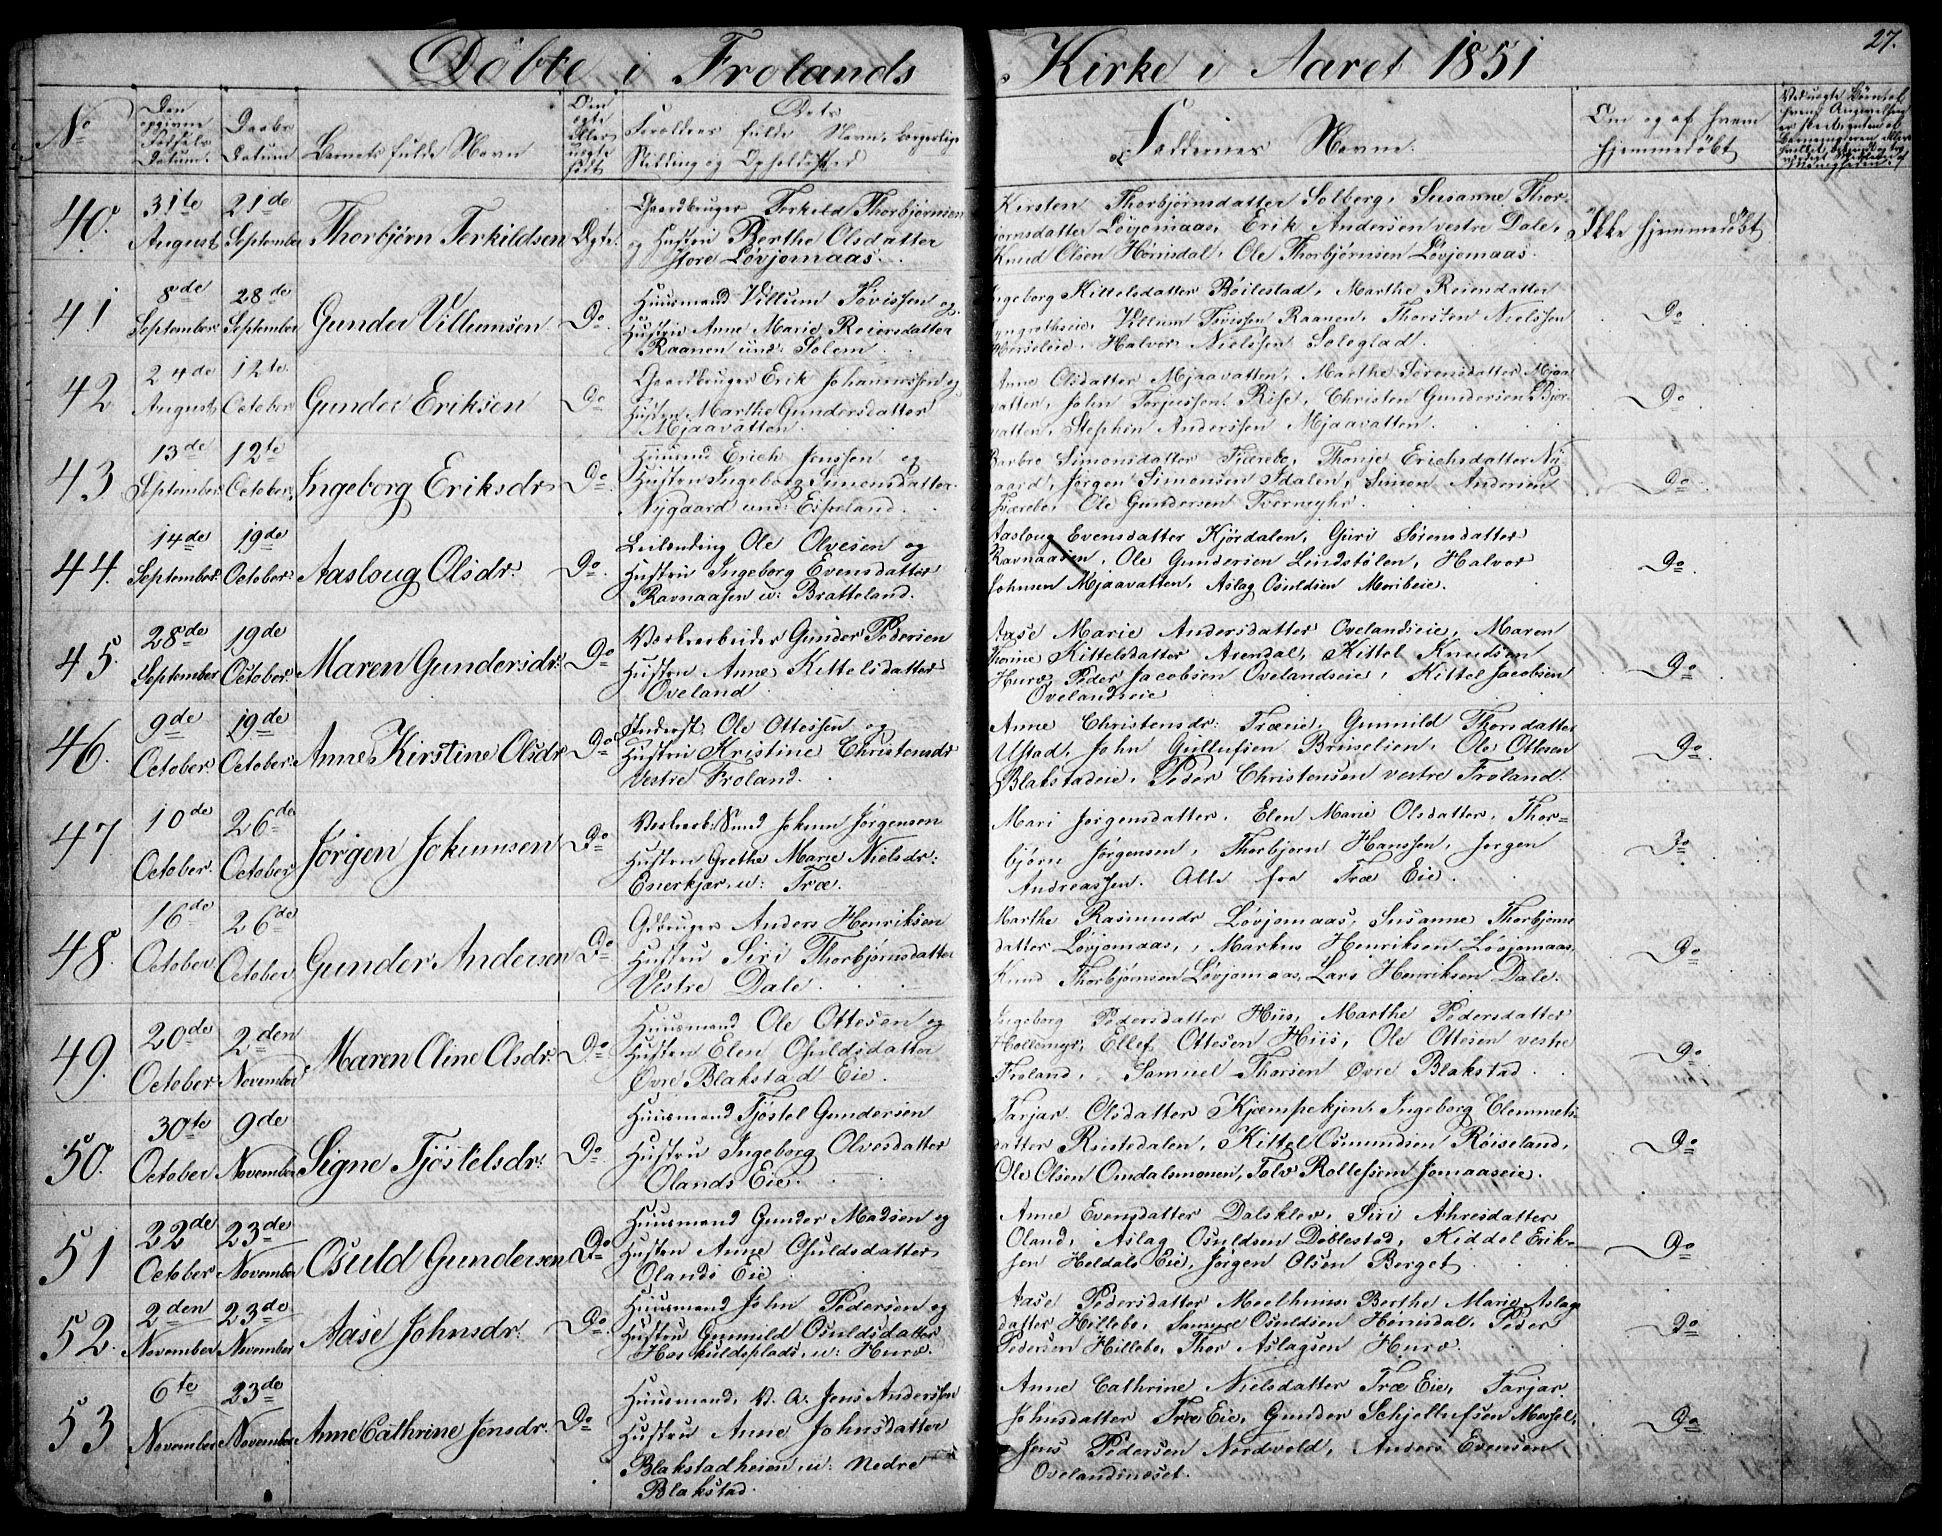 Döbte i Frolands Kirke i Aaret 1851
27.
No
Den opgivne Fødsels Datum.
Daabs Datum
Barnets fulde Navn
Om ægte eller uægte født
Dets Forældres fulde Navn, borgerlige Stilling og Opholdssted
Faddernes Navne.
Om og af hvem hjemmedøbt
40.
31te August
21de September
Thorbjørn Terkildsen
Ægte.
Gaardbruger Terkild Thorbjørnsen
og Hustru Berthe Olsdatter
Store Løvjomaas.
Kirsten Thorbjørnsdatter Solberg, Susanne Thor-
bjørnsdatter Løvjomaas, Erik Andersen vestre Dale,
Knud Olsen Hørnsdal, Ole Thorbjørnsen Løvjomaas.
Ikke hjemmedöbt
41
8de September
28de September
Gunder Villumsen
Do
Huusmand Villum Tovissen og
Hustru Anne Marie Reiersdatter
Raanen und: Solem.
Ingeborg Kittelsdatter Böilestad, Marthe Reiersdatter
Villum Tovissen Raanen, Thorsten Nielssen
Halvor Nielssen Soleglad.
Do
42
24de August
12te October
Gunder Eriksen
Do
Gaardbruger Erik Johannessen og
Hustru Marthe Gundersdatter
Mjaavatten.
Anne Olsdatter Mjaavatten, Marthe Sørensdatter Mjaa
vatten, John Terjussen Rise, Christen Gundersen Bjor-
vatten, Stephen Anderssen Mjaavatten.
Do
43
13de September
12te October
Ingeborg Eriksdr
Do
Huusmd Erich Jenssen og
Hustru Ingeborg Simonsdatter
Nygaard und: Espeland.
Barbro Simonsdatter Tværebø, Thonje Erichsdatter Ny
gaard, Jørgen Simonsen Idalen, Simon Andersen
Tværebø, Ole Gundersen Tvermyhr.
Do
44.
14de September
19de October
Aasloug Olsdr.
Do
Leilending Ole Olvesen og
Hustru Ingeborg Evensdatter
Ravnaasen u: Bratteland.
Aasloug Evensdatter Kjørdalen, Guri Sørensdatter
Ravnaasen, Ole Gundersen Lindstølen, Halvor
Johnsen Mjaavatten, Aslag Osuldsen Moribeie.
Do
45.
28de September
19de October
Maren Gundersdr.
Do
Verksarbeider Gunder Pedersen
Hustru Anne Kittelsdatter
Oveland
Aase Marie Andersdatter Ovelandseie, Maren
Thorine Kittelsdatter Arendal, Kittel Knudsen
Hurv, Peder Jacobsen Ovelandseie, Kittel Jacobsen
Ovelandseie
Do
46.
9de October
19de October
Anne Kirstine Olsdr
Do
Ole Ottessen og
Hustru Kristine Christensdr
Vestre Froland.
Anne Christensdr: Træeie, Gunnild Thorsdatter
Ustad, John Gullufsen Bruselien, Ole Ottesen
Blakstadeie, Peder Christensen vestre Froland.
Do
47
10de October
26de October
Jørgen Jokumsen
Do
Jokum Jørgensen
Hustru Grethe Marie Nielsdr:
Enerkjær, u: Træ.
Mari Jørgensdatter, Elen Marie Olsdatter, Thor=
bjørn Jørgensen, Thorbjørn Hanssen, Jørgen
Andreassen. Alle fra Træ Eie.
Do
48.
16de October
26de October
Gunder Andersen
Do
Gdbruger Anders Henriksen
Hustru Siri Thorbjørnsdatter
Vestre Dale.
Marthe Rasmusdr Løvjomaas, Susanne Thorbjørns
datter Løvjomaas, Markus Henriksen Løvjomaas,
Knud Thorbjørnsen Løvjomaas, Lars Henriksen Dale.
Do
49.
20de October
2den November
Maren Oline Olsdr.
Do
Huusmand Ole Ottesen og
Hustru Elen Osuldsdatter
Øvre Blakstad Eie.
Ingeborg Pedersdatter Hiis, Marthe Pedersdatter
Hollemyr, Ellef Ottesen Hiis, Ole Ottesen vestre
Froland, Samuel Thorsen Øvre Blakstad.
Do
50.
30te October
9de November
Signe Tjöstelsdr.
Do
Huusmand Tjöstel Gundersen
Hustru Ingeborg Olvesdatter
Olands Eie.
Tarjær Olsdatter Kjæmpekjen, Ingeborg Clemmets
datter Rustsdalen, Kittel Osmundsen Röiseland,
Ole Olsen Omdalsmonen, Tolv Rollefsen Jomaaseie.
Do
51
22de October
23de November
Osuld Gundersen
Do
Huusmand Gunder Madsen og
Hustru Anne Osuldsdatter
Olands Eie
Anne Evensdatter Dalsklev, Siri Ahresdatter
Oland, Aslag Osuldsen Döblestad, Kiddel Erik-
sen Heldals Eie, Jørgen Olsen Berget.
Do
52.
2den November
23de November
Aase Johnsdr.
Do
Huusmand John Pedersen og
Hustru Gunnild Osuldsdatter
Haskuldsplads, u: Hurv.
Aase Pedersdatter Moelhuus, Berthe Marie Aslags
datter Hillebo, Samuel Osuldsen Hörnsdal, Peder
Pedersen Hillebo, Thor Aslagsen Hurv.
Do
53
6te November
23de November
Anne Cathrine Jensdr.
Do
Huusmand, V. A. Jens Anderssen
Hustru Anne Johnsdatter
Blakstadheien, u: Nedre
Blakstad.
Anne Cathrine Nielsdatter Træ Eie, Tarjær
Johnsdatter Træ Eie, Gunder Schjellufsen Messel,
Jens Pedersen Nordveld, Anders Evensen
Ovelandsneset.
Do